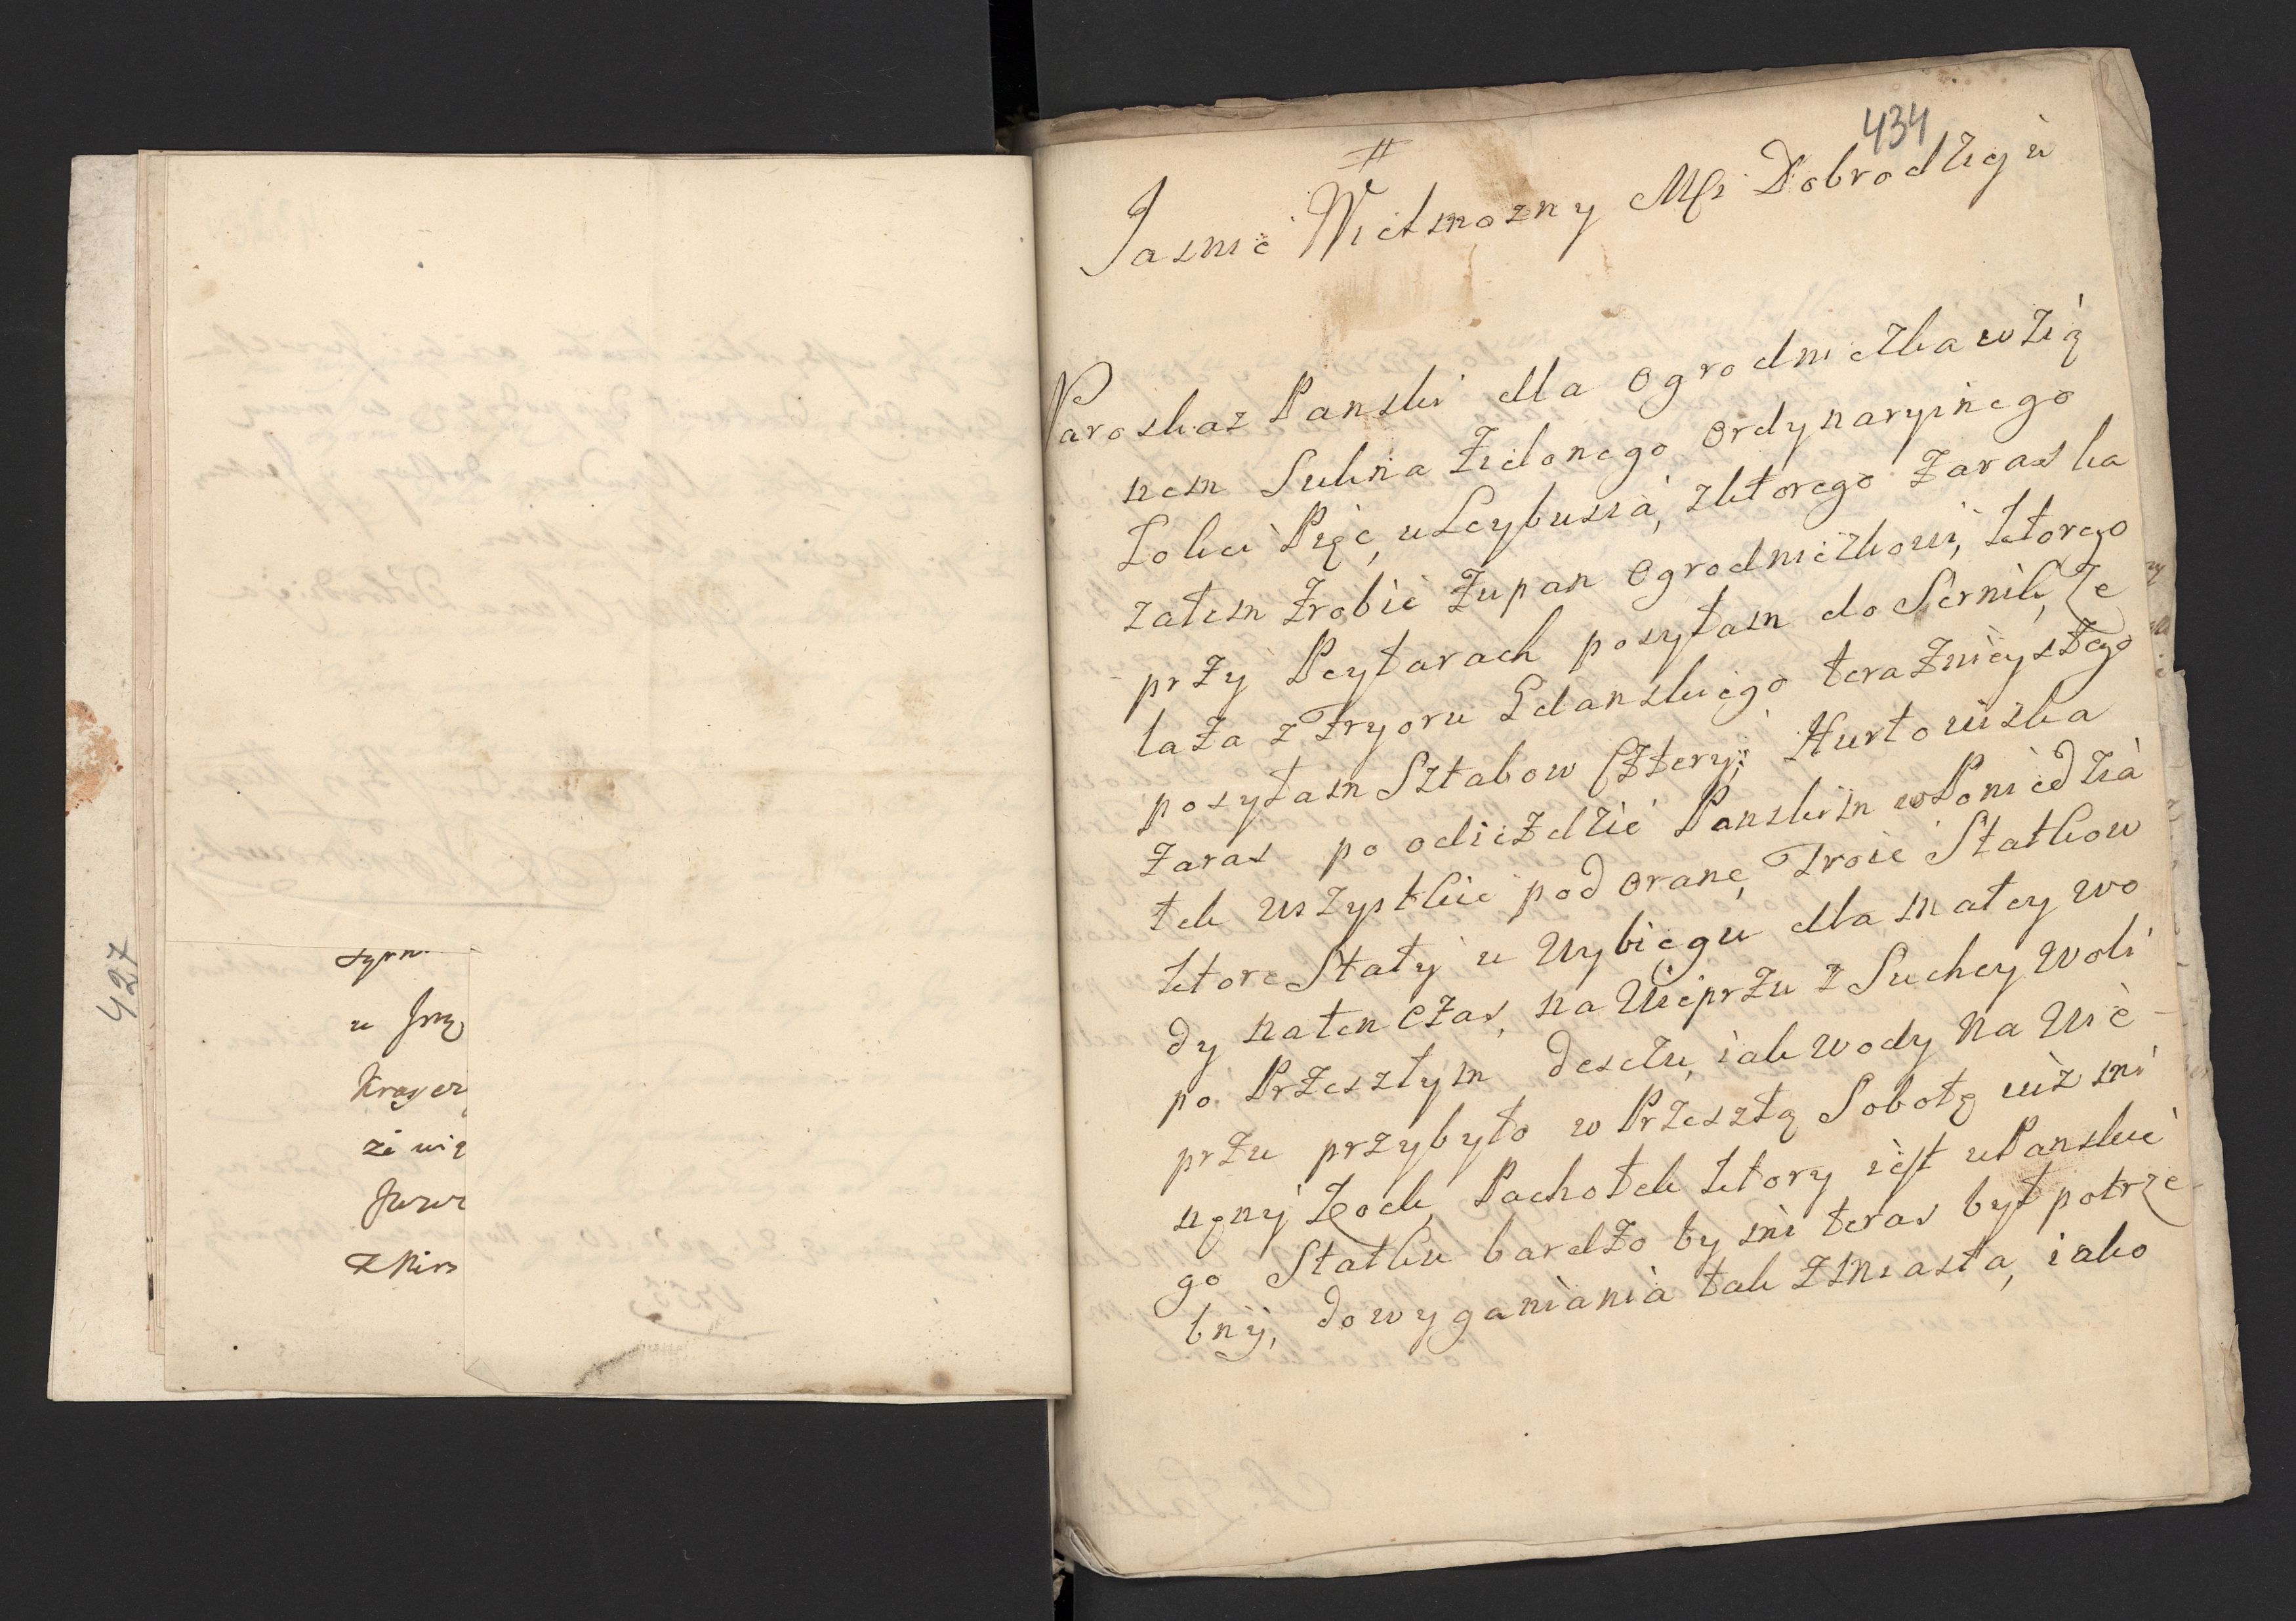 427
syrn
u Jmę
Krayez
że wię
Jurur
z Mirs
434
Jasnie Wielmozny Msci Dobrodzieju
Naroskaz Panski dla Ogrodniczka wzią
nem Sukna Zielonego Ordynaryinego
Łokci Pięc, u Leybusia, z ktorego Zaras ka
załem Zrobic Zupan Ogrodniczkowi, ktorego
przy Peytarach posyłam do Sernik, Ze
laza z Fryoru Gdanskiego terazniejszego
posyłam Sztabow Cztery; Hurtowiska
Zaras po odiezdzie Panskim w Poniedzia
łek wszystkie pod Orane, Troie Statkow
ktore Stały u Wybiegu dla małey wo
dy naten czas, na Wieprzu z Suchey Woli
po Przeszłym desczu, iak wody na Wie-
przu przybyło w Przeszłą Sobotę uiż mi
nęny Kock, Pachołek ktory iest u Panskie
go Statku bardzo by mi teras był potrze-
bny, do wyganiania tak z Miasta, iako